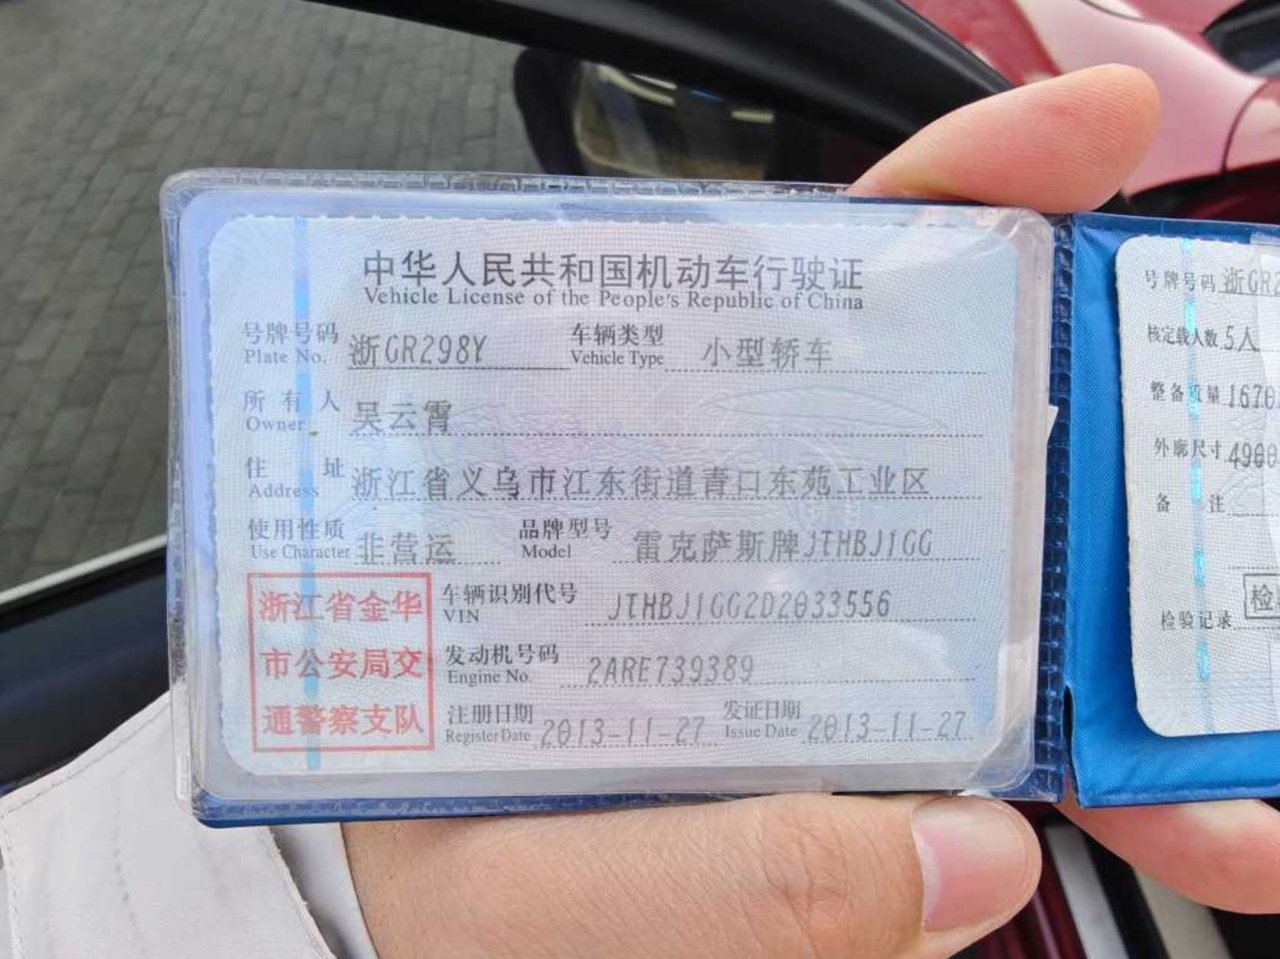 中华人民共和国机动车行驶证
Vehicle License of the People's Republic of China
号牌号码 浙GR298Y 车辆类型 小型轿车
Plate No. Vehicle Type
所有人 吴云霄
Owner
住址 浙江省义乌市江东街道青口东苑工业区
Address
使用性质 非营运 品牌型号 雷克萨斯牌JTHBJ1GG
Use Character Model
浙江省金华
市公安局交
通警察支队
车辆识别代号 JTHBJ1GG2D2033556
VIN
发动机号码 2ARE739389
Engine No.
注册日期 2013-11-27 发证日期 2013-11-27
Register Date Issue Date
号牌号码 浙GR2
核定载人数 5人
整备质量 1670
外廓尺寸 4900
备注
检
检验记录